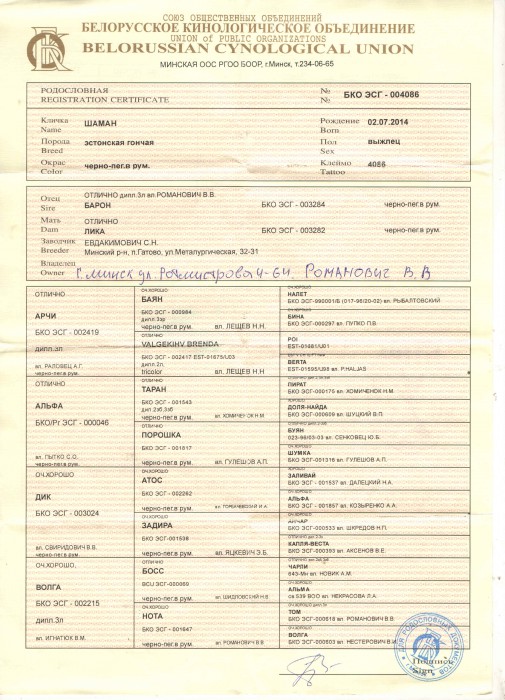 СОЮЗ ОБЩЕСТВЕННЫХ ОБЪЕДИНЕНИЙ
БЕЛОРУССКОЕ КИНОЛОГИЧЕСКОЕ ОБЪЕДИНЕНИЕ
UNION of PUBLIC ORGANIZATIONS
BELORUSSIAN CYNOLOGICAL UNION
МИНСКАЯ ООС РГОО БООР, г.Минск, т.234-06-65
РОДОСЛОВНАЯ № БКО ЭСГ - 004086
REGISTRATION CERTIFICATE №
Кличка ШАМАН Рождение 02.07.2014
Name Born
Порода эстонская гончая Пол выжлец
Breed Sex
Окрас черно-пег.в рум. Клеймо 4086
Color Tattoo
Отец ОТЛИЧНО дипл.3л вл.РОМАНОВИЧ В.В.
Sire БАРОН БКО ЭСГ - 003284 черно-пег.в рум.
Мать ОТЛИЧНО
Dam ЛИКА БКО ЭСГ - 003282 черно-пег.в рум.
Заводчик ЕВДАКИМОВИЧ С.Н.
Breeder Минский р-н, п.Гатово, ул.Металургическая, 32-31
Владелец
Owner г.Минск РОМАНОВИЧ В.В
ОТЛИЧНО
АРЧИ
БКО ЭСГ - 002419
дипл.3л
вл. РАЛОВЕЦ А.Г.
ОТЛИЧНО
АЛЬФА
БКО/Рг ЭСГ - 000046
вл. ПЫТКО С.О.
ОЧ.ХОРОШО
ДИК
БКО ЭСГ - 003024
вл. СВИРИДОВИЧ В.В.
ОЧ.ХОРОШО,
ВОЛГА
БКО ЭСГ - 002215
дипл.3л
вл. ИГНАТЮК В.М.
ОЧ.ХОРОШО
БАЯН
БКО ЭСГ - 000984
дипл.3зр
черно-пег.в рум. вл. ЛЕЩЕВ Н.Н.
ОТЛИЧНО
VALGEKIHV BRENDA
БКО ЭСГ - 002417 EST-01675/U03
дипл.2л,
tricolor вл. ЛЕЩЕВ Н.Н
ОТЛИЧНО
ТАРАН
БКО ЭСГ - 001543
дип.2зб,3зб
черно-пег.в рум. вл. ХОМИЧЕНОК Н.М.
ОЧ.ХОРОШО
ПОРОШКА
БКО ЭСГ - 001817
черно-пег.в рум. вл. ГУЛЕШОВ А.П.
ОЧ.ХОРОШО
АТОС
БКО ЭСГ - 002282
черно-пег.в рум. вл. ГОРБАЧЕВСКИЙ И.А.
ОЧ.ХОРОШО
ЗАДИРА
БКО ЭСГ-001538
черно-пег.в рум. вл. ЯЦКЕВИЧ Э.Б.
ОЧ.ХОРОШО
БОСС
BCU ЭСГ-000069
черно-пег.в рум. вл. ШИДЛОВСКИЙ Н.В.
ОЧ.ХОРОШО
НОТА
БКО ЭСГ - 001647
черно-пег.в рум. вл. РОМАНОВИЧ В.В
ОЧ.ХОРОШО
НАЛЕТ
БКО ЭСГ-990001/Б (017-96/20-02) вл. РЫБАЛТОВСКИЙ
БИНА
БКО ЭСГ-000297 вл. ПУПКО П.В.
POI
EST-01881/U01
BERTA
EST-01595/U98 вл. P.HALJAS
ПИРАТ
БКО ЭСГ-000175 вл. ХОМИЧЕНОК Н.М.
ДОЛЯ-НАЙДА
БКО ЭСГ-000609 вл. ШУЦКИЙ В.П.
БУЯН
023-96/03-03 вл. СЕНКОВЕЦ Ю.Б.
ОЧ.ХОРОШО
ШУМКА
БКО ЭСГ-001316 вл. ГУЛЕШОВ А.П.
ОЧ.ХОРОШО
ЗАЛИВАЙ
БКО ЭСГ - 001537 вл. ДАЛЕЦКИЙ Н.А.
АЛЬФА
БКО ЭСГ - 001857 вл. КОЗЫРЕНКО А.А.
АНЧАР
БКО ЭСГ-000533 вл. ШКРЕДОВ Н.П.
КАЛЛЯ-ВЕСТА
БКО ЭСГ-000393 вл. АКСЕНОВ В.Е.
ЧАРЛИ
643-Мн вл. НОВИК А.М.
АЛЬМА
св.539 ВОО вл. НЕКРАСОВА Л.А.
ТОМ
БКО ЭСГ-000618 вл. РОМАНОВИЧ В.В
ВОЛГА
БКО ЭСГ-000603 вл. НЕСТЕРОВИЧ И.
ДЛЯ РОДОСЛОВНЫХ ДОКУМЕНТОВ
Подпись
Sign